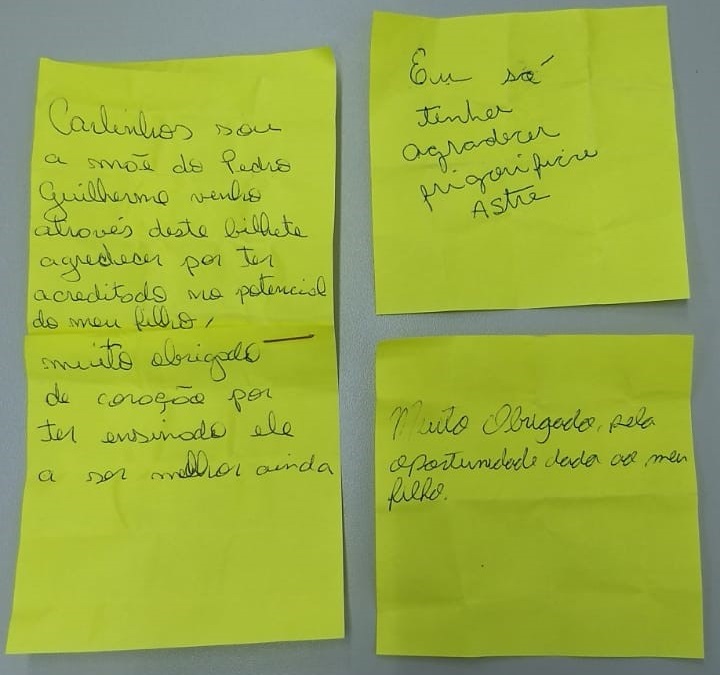 Carlinhos sou
a mãe do Pedro
Guilherme venho
através deste bilhete
agradecer por ter
acreditado no potencial
do meu filho,
muito obrigado
de coração por
ter ensinado ele
a ser melhor ainda
Eu só
tenho
agradecer
frigorifico
Astra
Muito Obrigado, pela
oportunidade dada ao meu
filho.